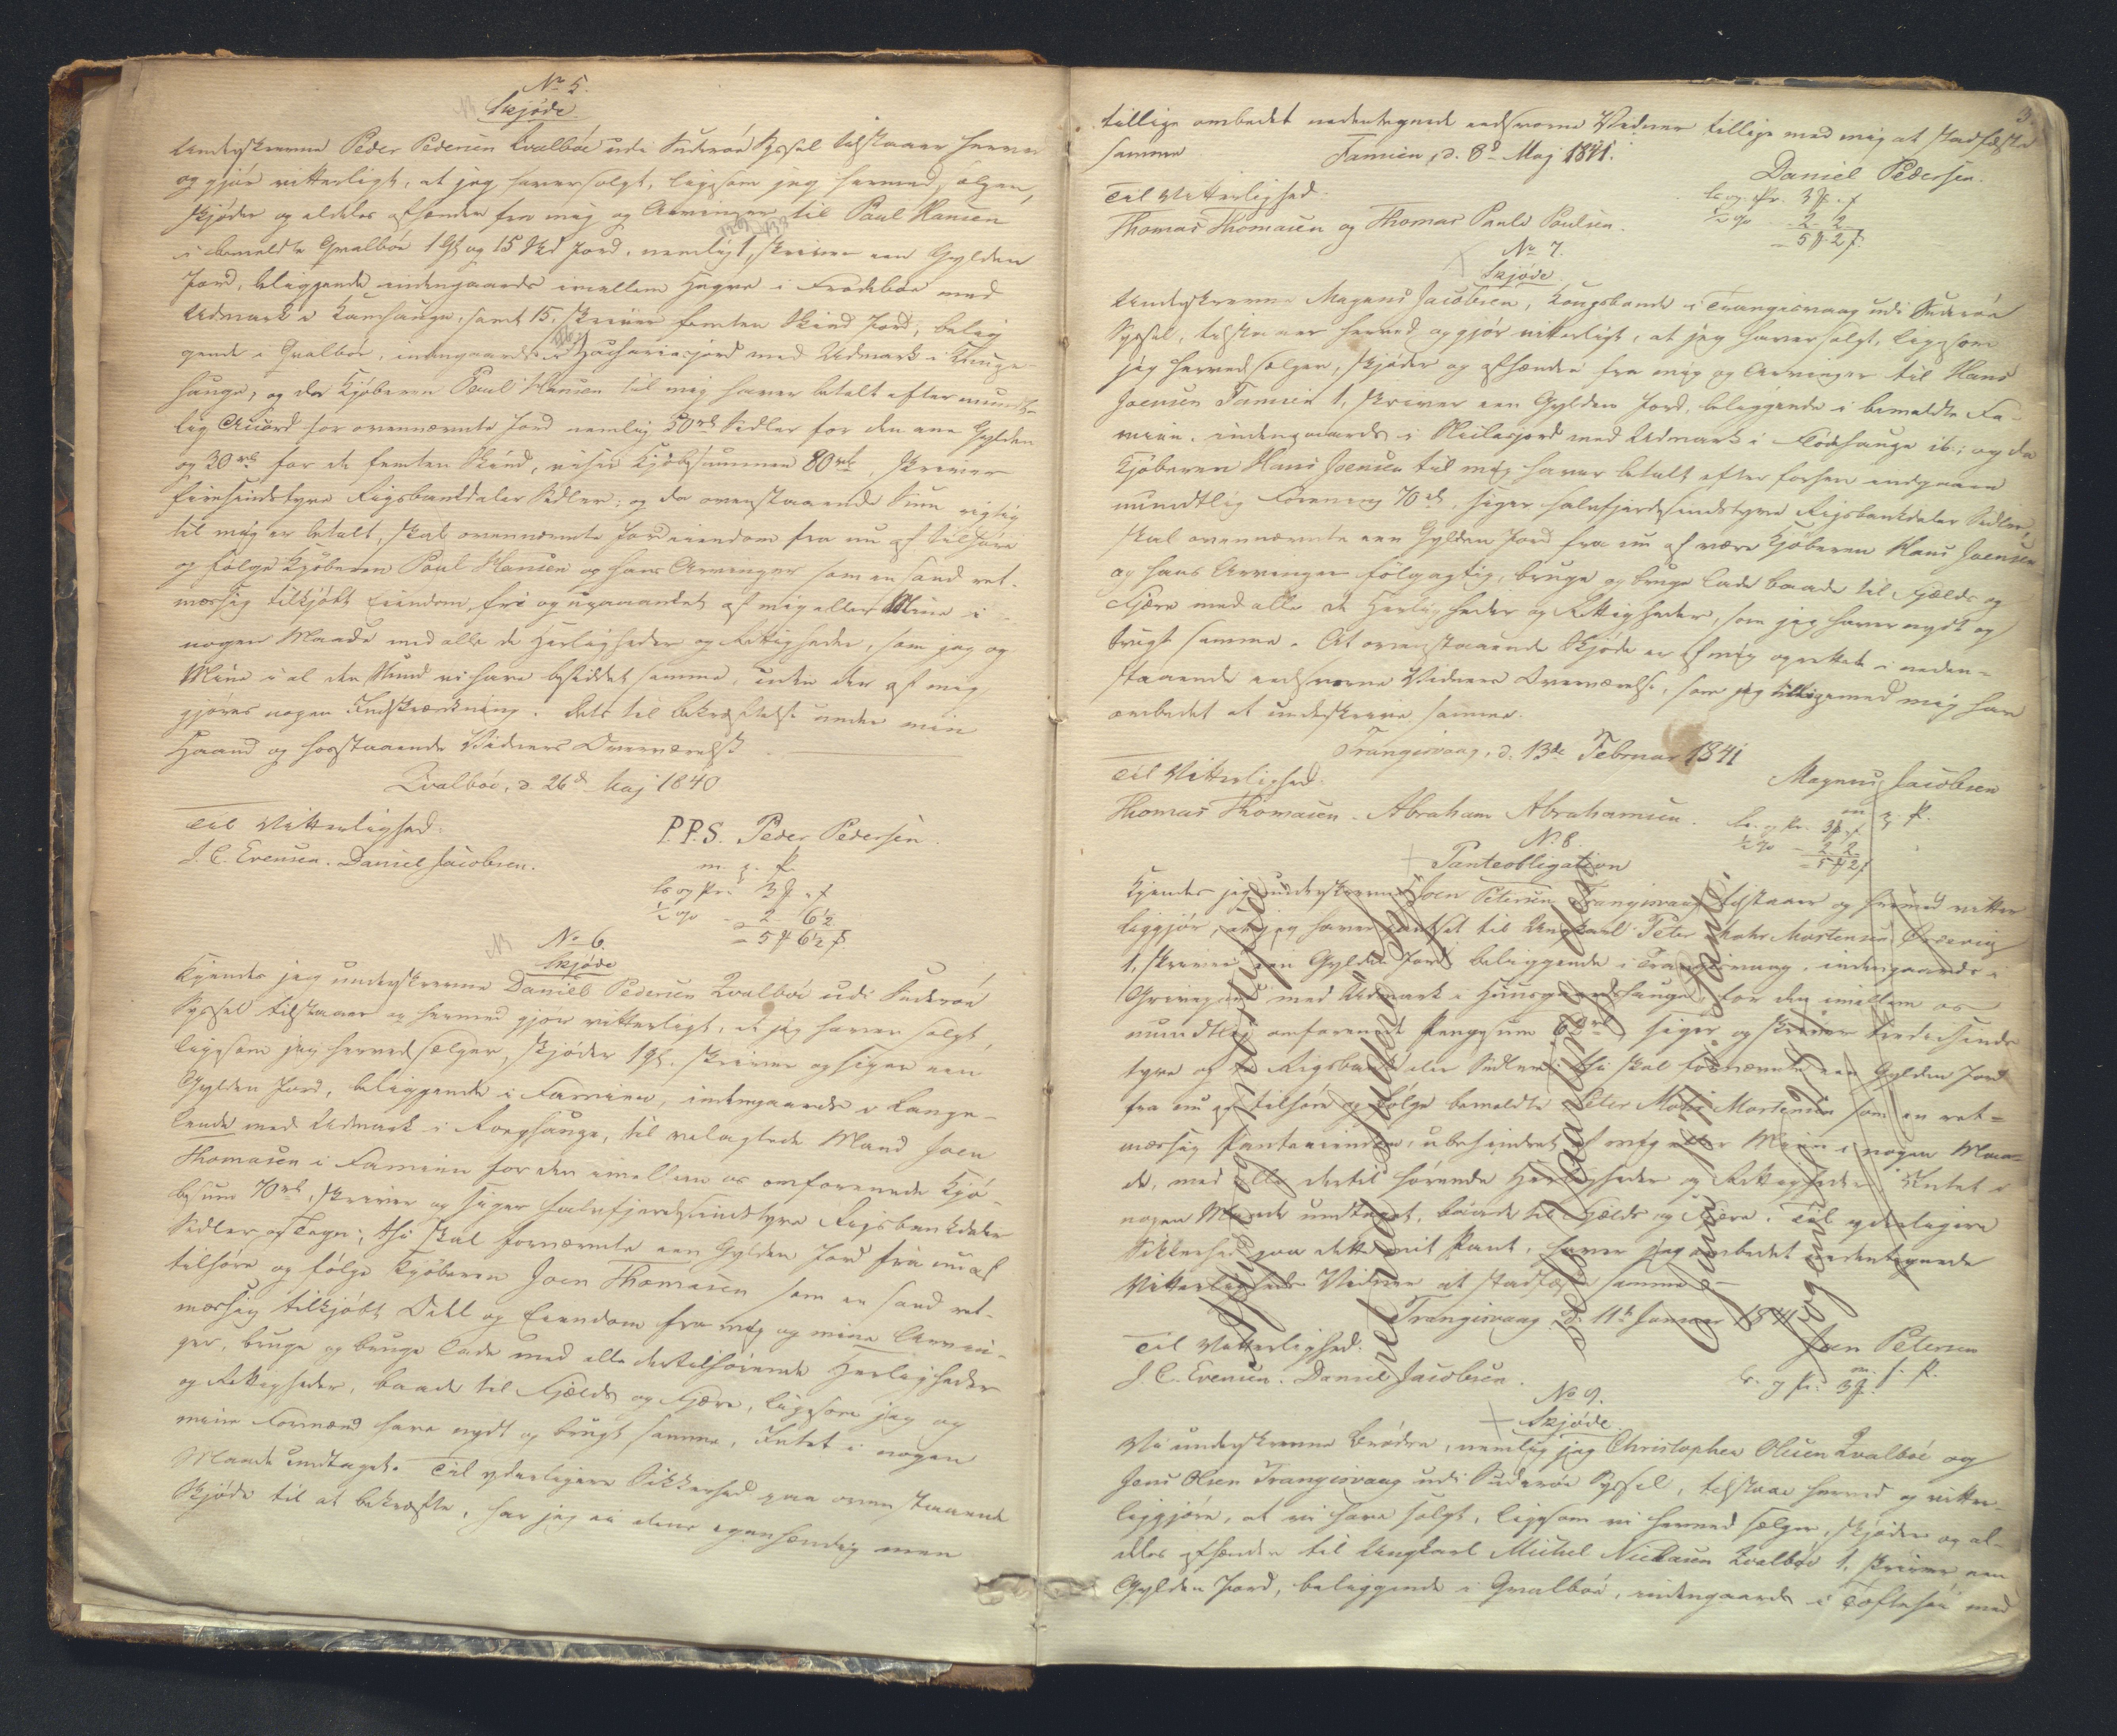 No 5.
Skjöde.
Underskrevne Peder Pedersen Qvalböe udi Suderöe Syssel tilstaaer herved
og gjör vitterligt, at jeg haver solgt, ligesom jeg hermed sælger,
skjöder og aldeles afhænder fra mig og Arvinger til Poul Hansen
i bemeldte Qvalböe 1 Gl og 15 Skd Jord, nemlig 1, skriver een Gylden
Jord, beliggende indengaards imellem Hegne i Frodeböe med
Udmark i Kamhauge, samt 15, skriver femten Skind Jord, belig
gende i Qvalböe, indengaards i Zachariasjord med Udmark i
hauge, og da Kjöberen Poul Hansen til mig haver betalt efter mundt-
lig Accord for ovennævnte Jord nemlig 50 rb Sedler for den ene Gylden
og 30 rb for de femten Skind, er Kjöbesummen 80 rb, skriver
Fiirsindstyve Rigsbankdaler Sedler; og da ovenstaaende Sum rigtig
til mig er betalt, skal ovennævnte Jordeiendom fra nu af tilhöre
og fölge Kjöberen Poul Hansen og hans Arvinger som en sand ret-
mæssig tilkjöbt Eiendom, fri og upaaanket af mig eller Mine i
nogen Maade med alle de Herligheder og Rettigheder, som jeg og
Mine i al den Stund vi have besiddet samme, uden der af mig
gjöres nogen Indskrænkning. Dets til Bekræftelse under min
Haand og hosstaaende Vidners Overværelse
Qvalböe, d. 26de Maj 1840
Til Vitterlighed: P.P.S. Peder Pedersen.
J. C. Evensen. Daniel Jacobsen. m. f. P.
Ls og Pr. 3 f
½ % - 2 - 6½
= 5 6½
No 6.
Skjöde
Kjendes jeg underskrevne Daniel Pedersen Qvalböe udi Suderöe
Syssel tilstaaer og hermed gjör vitterligt, at jeg haver solgt,
ligesom jeg herved sælger, skjöder 1 Gl. skriver og siger een
Gylden Jord, beliggende i Famien, indengaards i Lange-
lende med Udmark i hauge, til velagtede Mand Joen
Thomasen i Famien for den imellem os omforenede Kjö-
besum 70 rb, skriver og siger halvfjerdsindstyve Rigsbankdaler
Sedler og Tegn; thi skal fornævnte een Gylden Jord fra nu af
tilhöre og fölge Kjöberen Joen Thomasen som en sand ret-
mæssig tilkjöbt Odel og Eiendom fra mig og mine Arvin-
ger, bruge og bruge lade med alle dertilhörende Herligheder
og Rettigheder, baade til Fjelds og Fjære, ligesom jeg og
mine Formænd have nydt og brugt samme, Intet i nogen
Maade undtaget. Til yderligere Sikkerhed paa ovenstaaende
Skjöde til at bekræfte, har jeg ei alene egenhændig men
3.
tillige ombedet nedentegnede eedsvorne Vidner tillige med mig at stadfæste
samme Famien, d. 8de Maj 1841.
Til Vitterlighed: Daniel Pedersen.
Thomas Thomasen og Thomas Paule Poulsen. Ls og Pr. 3 f
½ % - 2 - 2
= 5 2
No 7.
Skjöde
Underskrevne Magnus Jacobsen, Kongsbonde i Trangisvaag udi Suderöe
Syssel, tilstaaer herved og gjör vitterligt, at jeg haver solgt, ligesom
jeg herved sælger, skjöder og afhænder fra mig og Arvinger til Hans
Joensen Famien 1, skriver een Gylden Jord, beliggende i bemeldte Fa-
mien, indengaards i jord med Udmark i hauge ib.; og da
Kjöberen Hans Joensen til mig haver betalt efter forhen indgaaen
mundtlig Forening 70 rb, siger halvfjerdsindstyve Rigsbankdaler Sedler,
skal ovennævnte een Gylden Jord fra nu af være Kjöberen Hans Joensen
og hans Arvinger fölgagtig, bruge og bruge lade baade til Fjelds og
Fjære med alle de Herligheder og Rettigheder, som jeg haver nydt og
brugt samme. At ovenstaaende Skjöde er af mig oprettet i neden-
staaende eedsvorne Vidners Overværelse, som jeg tilligemed mig har
ombedet at underskrive samme.
Trangisvaag, d. 13de Februar 1841
Til Vitterlighed: Magnus Jacobsen
Thomas Thomasen. Abraham Abrahamsen. m f. P.
Ls. og Pr. 3 f
½ % - 2 2
= 5 2
No 8.
Panteobligation
Kjendes jeg underskrevne Joen Petersen Trangisvaag tilstaaer og herved vitter
liggjör, at jeg haver pantsat til Ungkarl Peter Mohr Mortensen
1, skriver een Gylden Jord beliggende i Trangisvaag, indengaards i
med Udmark i Huusgaardshauge, for den imellem os
mundtlig omforenede Pengesum 62 rb, siger og skriver tredesinds
tyve og to Rigsbankdaler Sedler; thi skal fornævnte een Gylden Jord
fra nu af tilhöre og fölge bemeldte Peter Mohr Mortensen som en ret-
mæssig Panteeiendom, ubehindret af mig eller Mine i nogen Maa-
de, med alle dertil hörende Herligheder og Rettigheder, Intet i
nogen Maade undtaget, baade til Fjelds og Fjære. Til yderligere
Sikkerhed paa dette mit Pant, haver jeg ombedet nedentegnede
Vitterligheds Vidner at stadfæste samme
Trangisvaag d. 11te Januar 1841
Til Vitterlighed: Joen Petersen
J. C. Evensen. Daniel Jacobsen. m. f. P.
Ls. og Pr. 3 f
Aflyst og
ret ved Suderö Sys-
sels Faarting den
6 Juni 1871.
No 9.
Skjöde
Vi underskrevne Brödre, nemlig jeg Christopher Olesen Qvalböe og
Jens Olsen Trangisvaag udi Suderöe Syssel, tilstaae herved og vitter-
liggjöre, at vi have solgt, ligesom vi hermed sælger, skjöder og al-
deles afhænder til Ungkarl Michel Niclasen Qvalböe 1, skriver een
Gylden Jord, beliggende i Qvalböe, indengaards i med